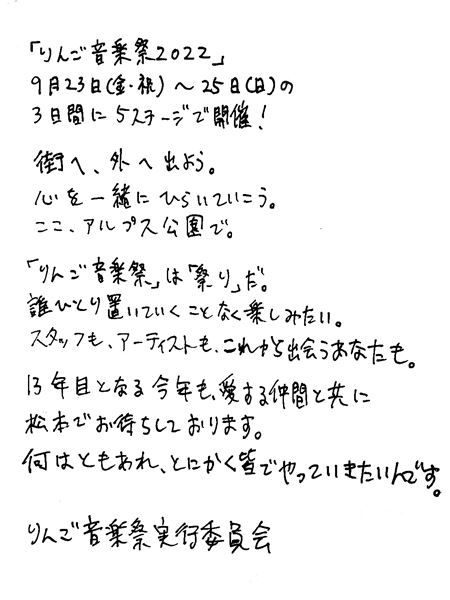 「りんご音楽祭2022」
9月23日(金・祝)〜25日(日)の
3日間に5ステージで開催!
街へ、外へ出よう。
心を一緒にひらいていこう。
ここ、アルプス公園で。
「りんご音楽祭」は「祭り」だ。
誰ひとり置いていくことなく楽しみたい。
スタッフも、アーティストも、これから出会うあなたも。
13年目となる今年も、愛する仲間と共に
松本でお待ちしております。
何はともあれ、とにかく皆でやっていきたいんです。
りんご音楽祭実行委員会